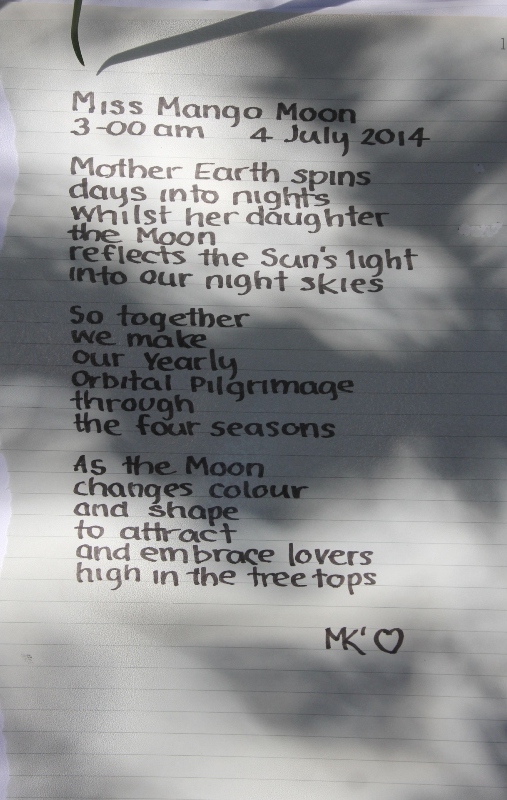 1
Miss Mango Moon
3-00 am 4 July 2014
Mother Earth spins
days into nights
whilst her daughter
the Moon
reflects the Sun's light
into our night skies
So together
we make
our Yearly
Orbital Pilgrimage
through
the four seasons
As the Moon
changes colour
and shape
to attract
and embrace lovers
high in the tree tops
MK'♡